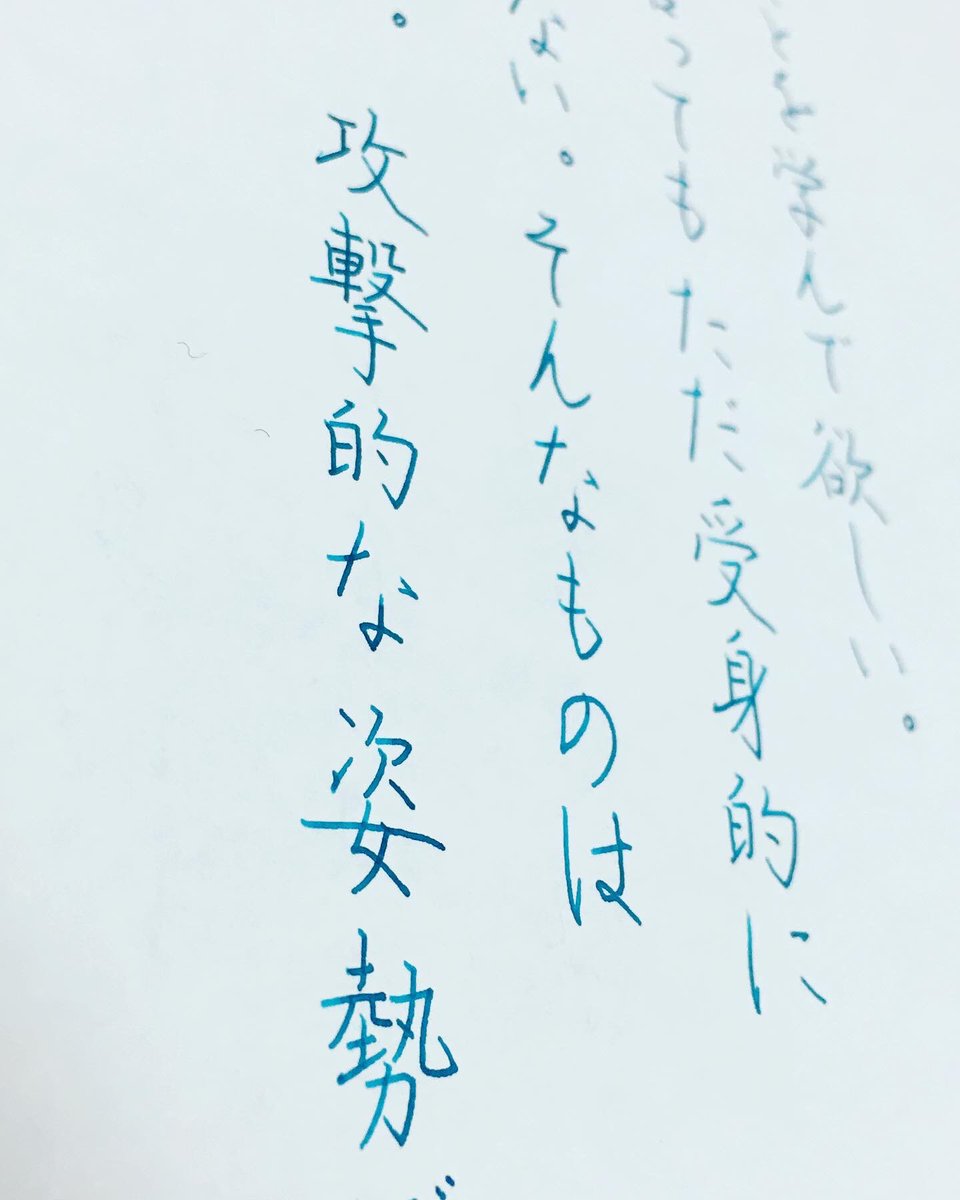 とを学んで欲しい。
ってもただ受身的に
ない。そんなものは
。攻撃的な姿勢